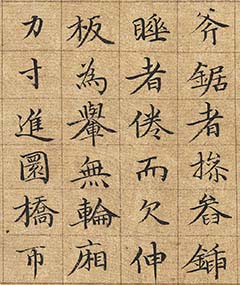 斧鋸者操畚鍤
睡者倦而欠伸
板為轝無輪廂
力寸進圜橋帀